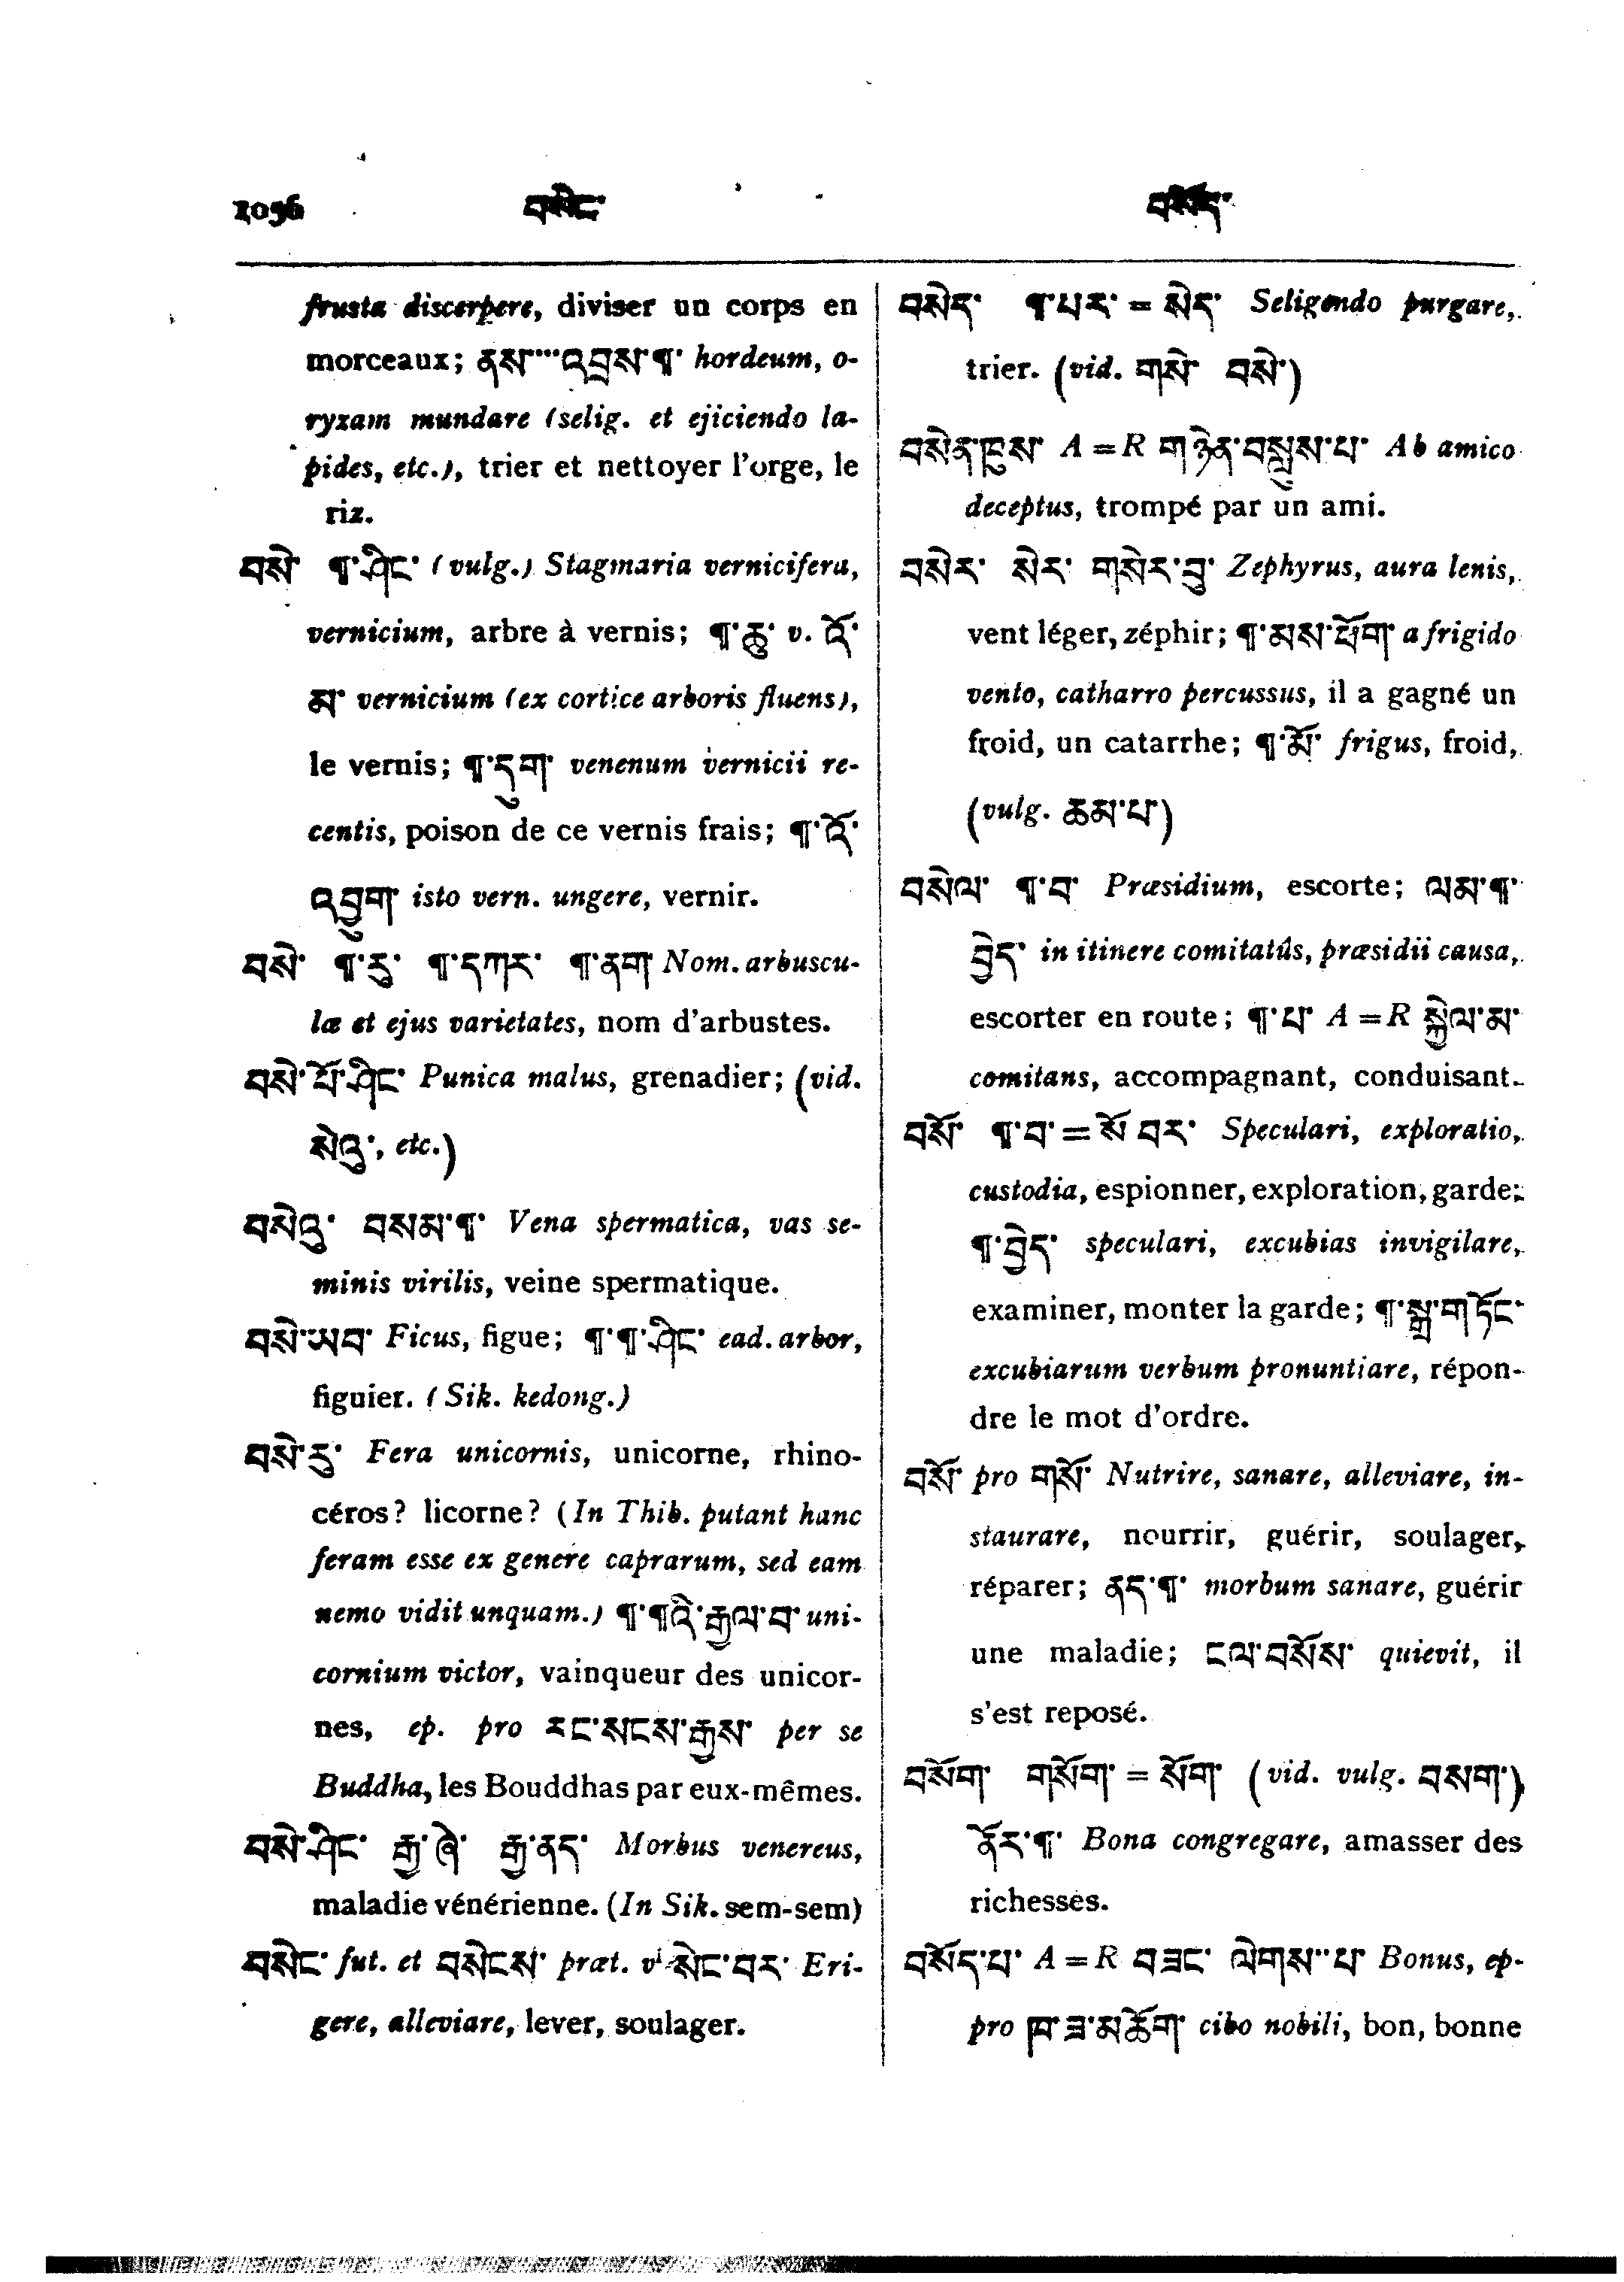 1056 བསེང་ བསོད་
frusta discerpere, diviser un corps en
morceaux; ནས་་་་འབྲས་¶་ hordeum, o-
ryzam mundare (selig. et ejiciendo la-
pides, etc.), trier et nettoyer l'orge, le
riz.
བསེ་ ¶་ཤིང་ (vulg.) Stagmaria vernicifera,
vernicium, arbre à vernis; ¶་ཆུ་ v. འོ་
མ་ vernicium (ex cortice arboris fluens),
le vernis; ¶་དུག་ venenum vernicii re-
centis, poison de ce vernis frais; ¶་འོ་
འབྱུག་ isto vern. ungere, vernir.
བསེ་ ¶་རུ་ ¶་དཀར་ ¶་ནག་ Nom. arbuscu-
læ et ejus varietates, nom d'arbustes.
བསེ་པོ་ཤིང་ Punica malus, grenadier; (vid.
སེའུ་, etc.)
བསེའུ་ བསམ་¶་ Vena spermatica, vas se-
minis virilis, veine spermatique.
བསེ་ཡབ་ Ficus, figue; ¶་¶་ཤིང་ ead. arbor,
figuier. (Sik. kedong.)
བསེ་རུ་ Fera unicornis, unicorne, rhino-
céros? licorne? (In Thib. putant hanc
feram esse ex genere caprarum, sed eam
nemo vidit unquam.) ¶་¶འི་རྒྱལ་བ་ uni-
cornium victor, vainqueur des unicor-
nes, ep. pro རང་སངས་རྒྱས་ per se
Buddha, les Bouddhas par eux-mêmes.
བསེ་ཤིང་ རྒྱ་ཞེ་ རྒྱ་ནད་ Morbus venereus,
maladie vénérienne. (In Sik. sem-sem)
བསེང་ fut. et བསེངས་ præt. v སེང་བར་ Eri-
gere, alleviare, lever, soulager.
བསེད་ ¶་པར་ = སེད་ Seligendo purgare,
trier. (vid. གསེ་ བསེ་)
བསེན་ཁུས་ A = R གཉེན་བསླུས་པ་ Ab amico
deceptus, trompé par un ami.
བསེར་ སེར་ གསེར་བུ་ Zephyrus, aura lenis,
vent léger, zéphir; ¶་མས་ཕོག་ a frigido
vento, catharro percussus, il a gagné un
froid, un catarrhe; ¶་མོ་ frigus, froid,
(vulg. ཆམ་པ་)
བསེལ་ ¶་བ་ Præsidium, escorte; ལམ་¶་
བྱེད་ in itinere comitatûs, præsidii causa,
escorter en route; ¶་པ་ A = R སྐྱེལ་མ་
comitans, accompagnant, conduisant.
བསོ་ ¶་བ་ = སོ་བར་ Speculari, exploratio,
custodia, espionner, exploration, garde;
¶་བྱེད་ speculari, excubias invigilare,
examiner, monter la garde; ¶་སྒྲ་གཏོང་
excubiarum verbum pronuntiare, répon-
dre le mot d'ordre.
བསོ་ pro གསོ་ Nutrire, sanare, alleviare, in-
staurare, nourrir, guérir, soulager,
réparer; ནད་¶་ morbum sanare, guérir
une maladie; ངལ་བསོས་ quievit, il
s'est reposé.
བསོག་ གསོག་ = སོག་ (vid. vulg. བསག་)
ནོར་¶་ Bona congregare, amasser des
richesses.
བསོད་པ་ A = R བཟང་ ལེགས་་པ་ Bonus, ep-
pro ཁ་ཟ་མཆོག་ cibo nobili, bon, bonne